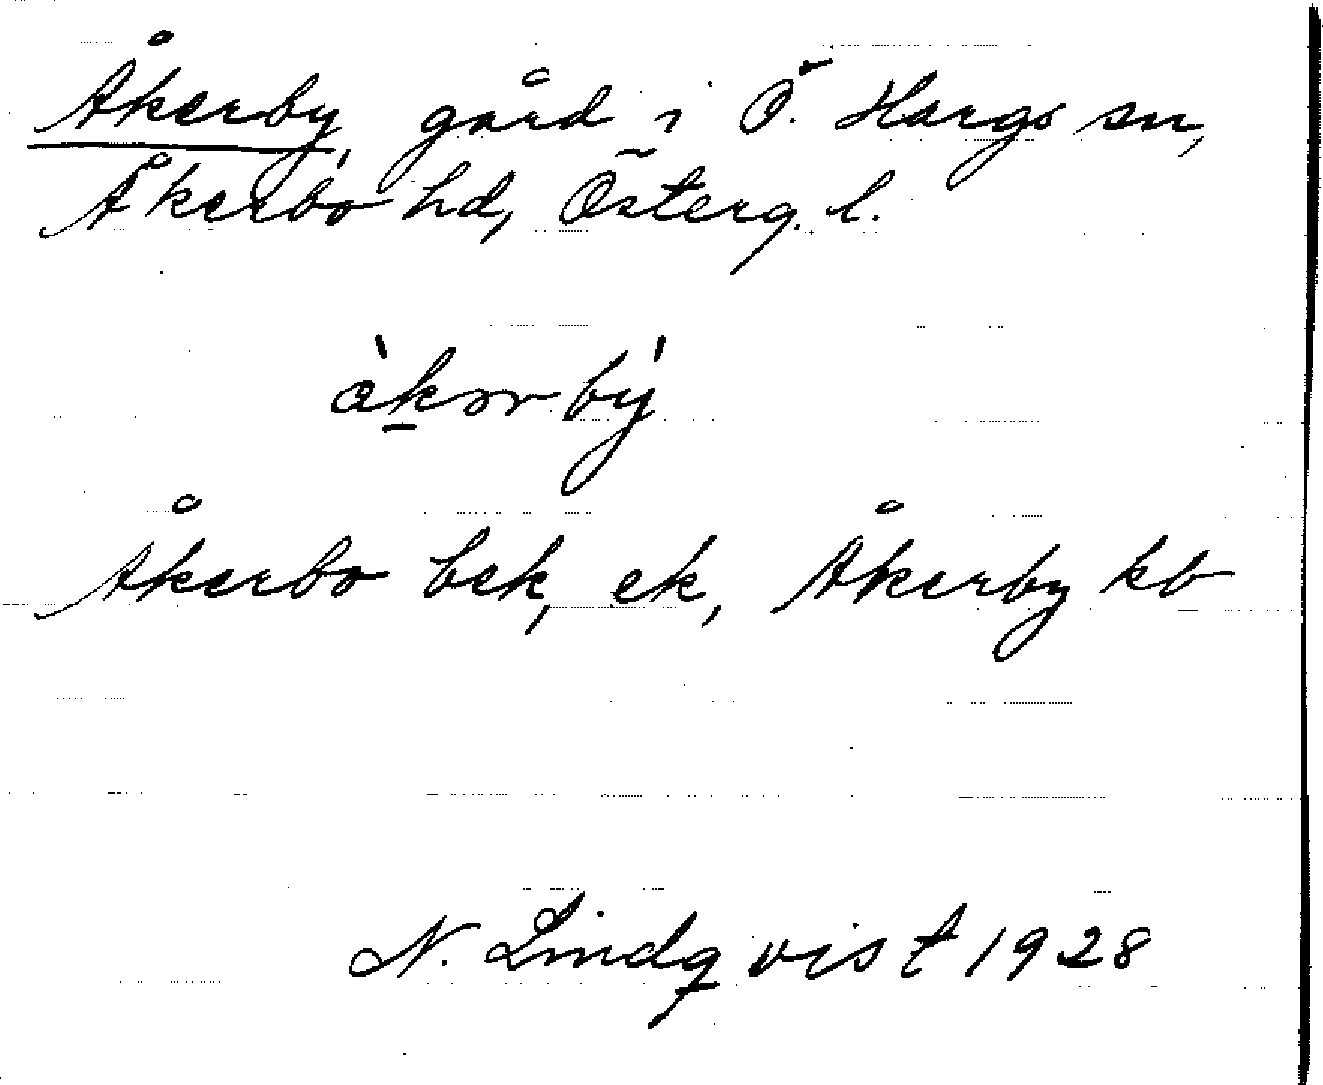 Åkerby gård i Ö. Hargs sn,
Åkerbo hd, Österg. l.
Åkerbo bek, ek, Åkerby kb
N. Lindqvist 1928